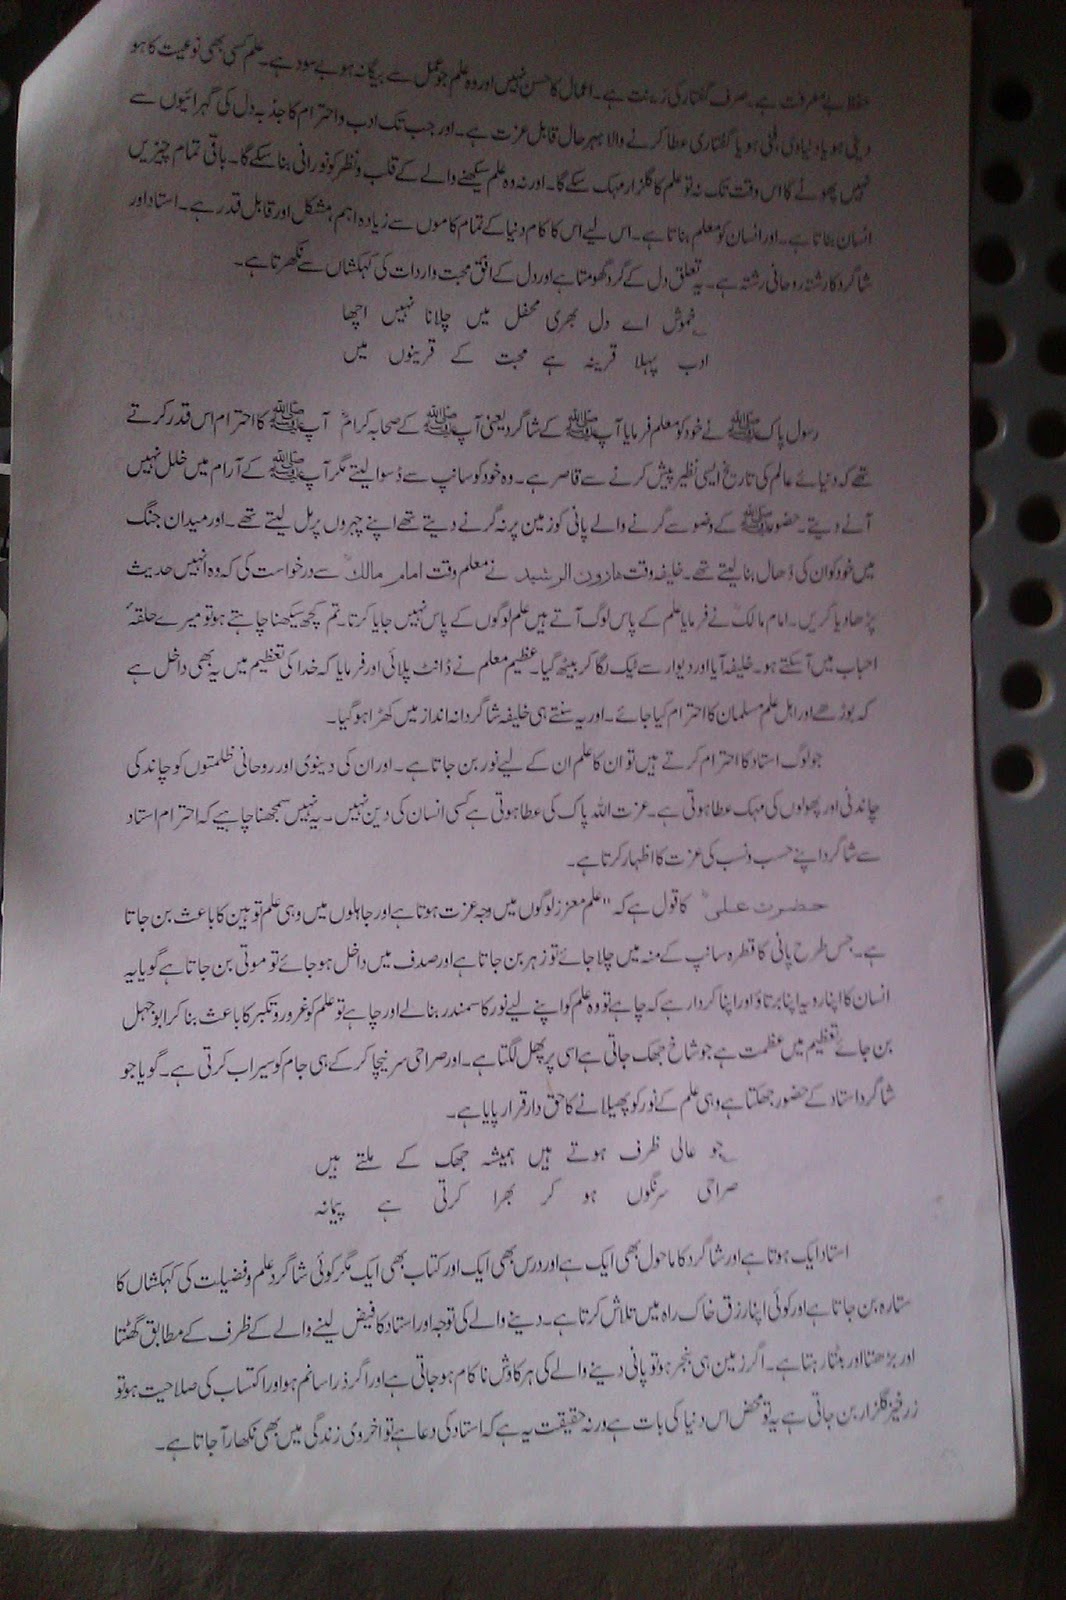 حفظ بے معرفت ہے۔ صرف گفتار کی زینت ہے۔ اعمال کا حسن نہیں اور وہ علم جو عمل سے بیگانہ ہو بے سود ہے۔ علم کسی بھی نوعیت کا ہو
دینی ہو یا دنیاوی، فنی ہو یا گفتاری عطا کرنے والا بہرحال قابل عزت ہے۔ اور جب تک ادب و احترام کا جذبہ دل کی گہرائیوں سے
نہیں پھوٹے گا اس وقت تک نہ تو علم کا گلزار مہک سکے گا۔ اور نہ وہ علم سیکھنے والے کے قلب و نظر کو نورانی بنا سکے گا۔ باقی تمام چیزیں
انسان بناتا ہے۔ اور انسان کو معلم بناتا ہے۔ اس لیے اس کا کام دنیا کے تمام کاموں سے زیادہ اہم، مشکل اور قابل قدر ہے۔ استاد اور
شاگرد کا رشتہ روحانی رشتہ ہے۔ یہ تعلق دل کے گرد گھومتا ہے اور دل کے افق محبت واردات کی کہکشاں سے نکھرتا ہے۔
خموش اے دل بھری محفل میں چلانا نہیں اچھا
ادب پہلا قرینہ ہے محبت کے قرینوں میں
رسول پاک ﷺ نے خود کو معلم فرمایا آپ ﷺ کے شاگرد یعنی آپ ﷺ کے صحابہ کرامؓ آپ ﷺ کا احترام اس قدر کرتے
تھے کہ دنیائے عالم کی تاریخ ایسی نظیر پیش کرنے سے قاصر ہے۔ وہ خود کو سانپ سے ڈسوا لیتے مگر آپ ﷺ کے آرام میں خلل نہیں
آنے دیتے۔ حضور ﷺ کے وضو سے گرنے والے پانی کو زمین پر نہ گرنے دیتے تھے اپنے چہروں پر مل لیتے تھے۔ اور میدان جنگ
میں خود کو ان کی ڈھال بنا لیتے تھے۔ خلیفہ وقت ھارون الرشید نے معلم وقت امام مالکؒ سے درخواست کی کہ وہ انہیں حدیث
پڑھا دیا کریں۔ امام مالکؒ نے فرمایا علم کے پاس لوگ آتے ہیں علم لوگوں کے پاس نہیں جایا کرتا۔ تم کچھ سیکھنا چاہتے ہو تو میرے حلقۂ
احباب میں آ سکتے ہو۔ خلیفہ آیا اور دیوار سے ٹیک لگا کر بیٹھ گیا۔ عظیم معلم نے ڈانٹ پلائی اور فرمایا کہ خدا کی تعظیم میں یہ بھی داخل ہے
کہ بوڑھے اور اہل علم مسلمان کا احترام کیا جائے۔ اور یہ سنتے ہی خلیفہ شاگردانہ انداز میں کھڑا ہو گیا۔
جو لوگ استاد کا احترام کرتے ہیں تو ان کا علم ان کے لیے نور بن جاتا ہے۔ اور ان کی دینوی اور روحانی ظلمتوں کو چاند کی
چاندنی اور پھولوں کی مہک عطا ہوتی ہے۔ عزت اللہ پاک کی عطا ہوتی ہے کسی انسان کی دین نہیں۔ یہ نہیں سمجھنا چاہیے کہ احترام استاد
سے شاگرد اپنے حسب و نسب کی عزت کا اظہار کرتا ہے۔
حضرت علیؓ کا قول ہے کہ "علم معزز لوگوں میں وجہ عزت ہوتا ہے اور جاہلوں میں وہی علم توہین کا باعث بن جاتا
ہے۔ جس طرح پانی کا قطرہ سانپ کے منہ میں چلا جائے تو زہر بن جاتا ہے اور صدف میں داخل ہو جائے تو موتی بن جاتا ہے گویا یہ
انسان کا اپنا رویہ اپنا برتاؤ اور اپنا کردار ہے کہ چاہے تو وہ علم کو اپنے لیے نور کا سمندر بنا لے اور چاہے تو علم کو غرور و تکبر کا باعث بنا کر ابو جہل
بن جائے تعظیم میں عظمت ہے جو شاخ جھک جاتی ہے اسی پر پھل لگتا ہے۔ اور صراحی سر نیچا کر کے ہی جام کو سیراب کرتی ہے۔ گویا جو
شاگرد استاد کے حضور جھکتا ہے وہی علم کے نور کو پھیلانے کا حق دار قرار پایا ہے۔
جو عالی ظرف ہوتے ہیں ہمیشہ جھک کے ملتے ہیں
صراحی سرنگوں ہو کر بھرا کرتی ہے پیمانہ
استاد ایک ہوتا ہے اور شاگرد کا ماحول بھی ایک ہے اور درس بھی ایک اور کتاب بھی ایک مگر کوئی شاگرد علم و فضیلت کی کہکشاں کا
ستارہ بن جاتا ہے اور کوئی اپنا رزق خاک راہ میں تلاش کرتا ہے۔ دینے والے کی توجہ اور استاد کا فیض لینے والے کے ظرف کے مطابق گھٹتا
اور بڑھتا اور بٹتا رہتا ہے۔ اگر زمین ہی بنجر ہو تو پانی دینے والے کی ہر کاوش ناکام ہو جاتی ہے اور اگر ذرا سا نم ہو اور اکتساب کی صلاحیت ہو تو
زرخیز گلزار بن جاتی ہے یہ تو محض اس دنیا کی بات ہے ورنہ حقیقت یہ ہے کہ استاد کی دعا ہے تو اخروی زندگی میں بھی نکھار آ جاتا ہے۔